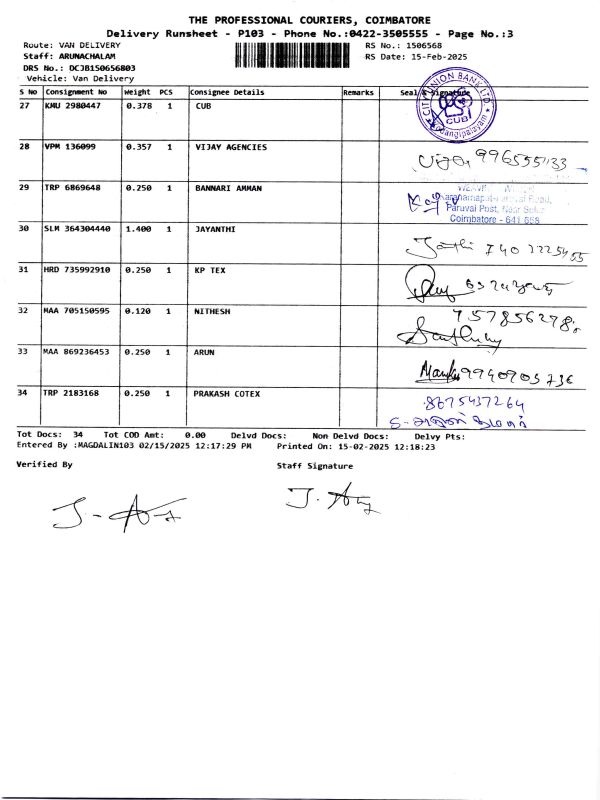 THE PROFESSIONAL COURIERS, COIMBATORE
Delivery Runsheet - P103 - Phone No.:0422-3505555 - Page No.:3
Route: VAN DELIVERY RS No.: 1506568
Staff: ARUNACHALAM RS Date: 15-Feb-2025
DRS No.: DCJB150656803
Vehicle: Van Delivery
S No Consignment No Weight PCS Consignee Details Remarks Seal & Signature
27 KMU 2980447 0.378 1 CUB
CITY UNION BANK LTD.
CUB
28 VPM 136099 0.357 1 VIJAY AGENCIES
29 TRP 6869648 0.250 1 BANNARI AMMAN
Road,
Paruvai Post, Near Sulur
Coimbatore - 641 658
30 SLM 364304440 1.400 1 JAYANTHI
31 HRD 735992910 0.250 1 KP TEX
32 MAA 705150595 0.120 1 NITHESH
33 MAA 869236453 0.250 1 ARUN
9940903736
34 TRP 2183168 0.250 1 PRAKASH COTEX
8675437264
Tot Docs: 34 Tot COD Amt: 0.00 Delvd Docs: Non Delvd Docs: Delvy Pts:
Entered By :MAGDALIN103 02/15/2025 12:17:29 PM Printed On: 15-02-2025 12:18:23
Verified By Staff Signature